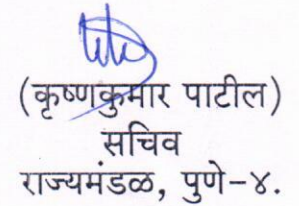 (कृष्णकुमार पाटील)
सचिव
राज्यमंडळ, पुणे-४.